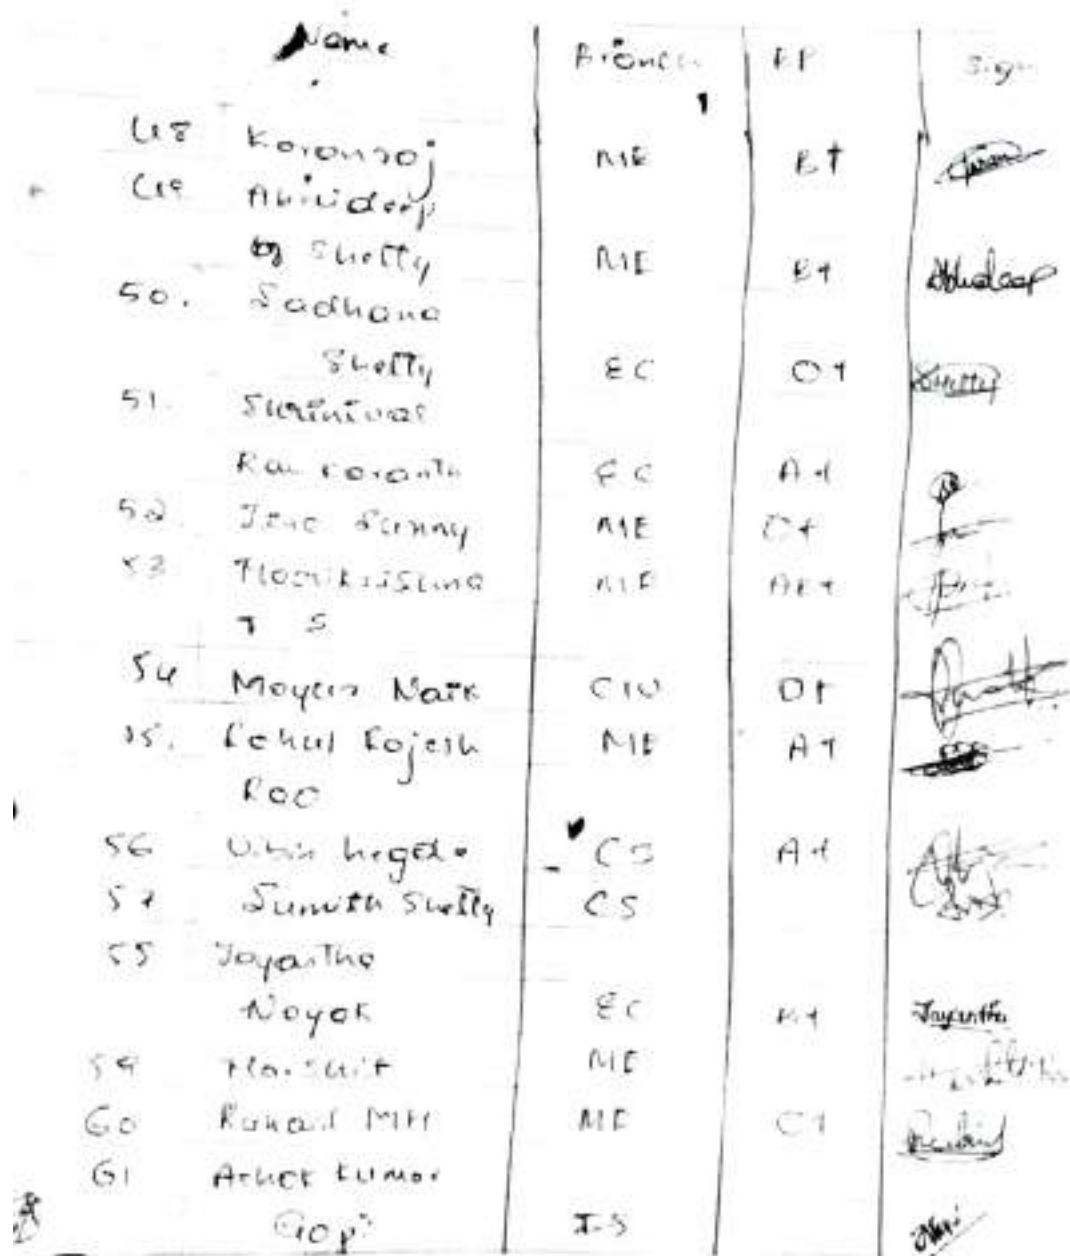 Name Branch BP Sign
48 Koronroj ME B+
49 Abhideep
Shetty ME B+ Abhideep
50. Sadhana
Shetty EC O+ Shetty
51. Shrinivas
Rai Koranth EC A+
52. Sunny ME O+
53 Harikrishna ME AB+
T S
54 Naik CIV O+
55. Rohul Rojesh ME A+
Roo
56 Vibin hegde CS A+
57 Sumith Shetty CS
Jayantha
Noyok EC B+ Jayantha
59 Harshit ME
60 MH ME O+
61 Ashok Kumar
Gopi IS